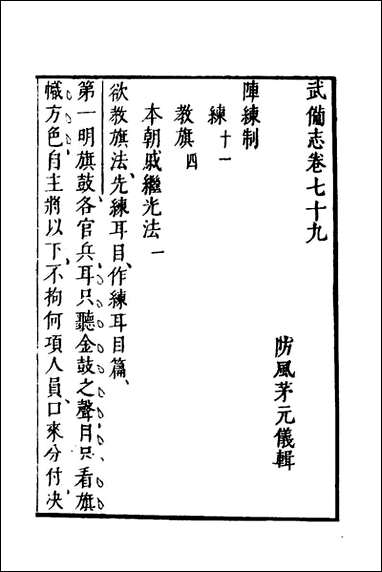 武備志卷七十九
防風茅元儀輯
陣練制
練十一
教旗四
本朝戚繼光法一
欲教旗法、先練耳目、作練耳目篇、
第一明旗鼓、各官兵、耳只聽金鼓之聲、目只看旗
幟方色、自主將以下、不拘何項人員、口來分付、决